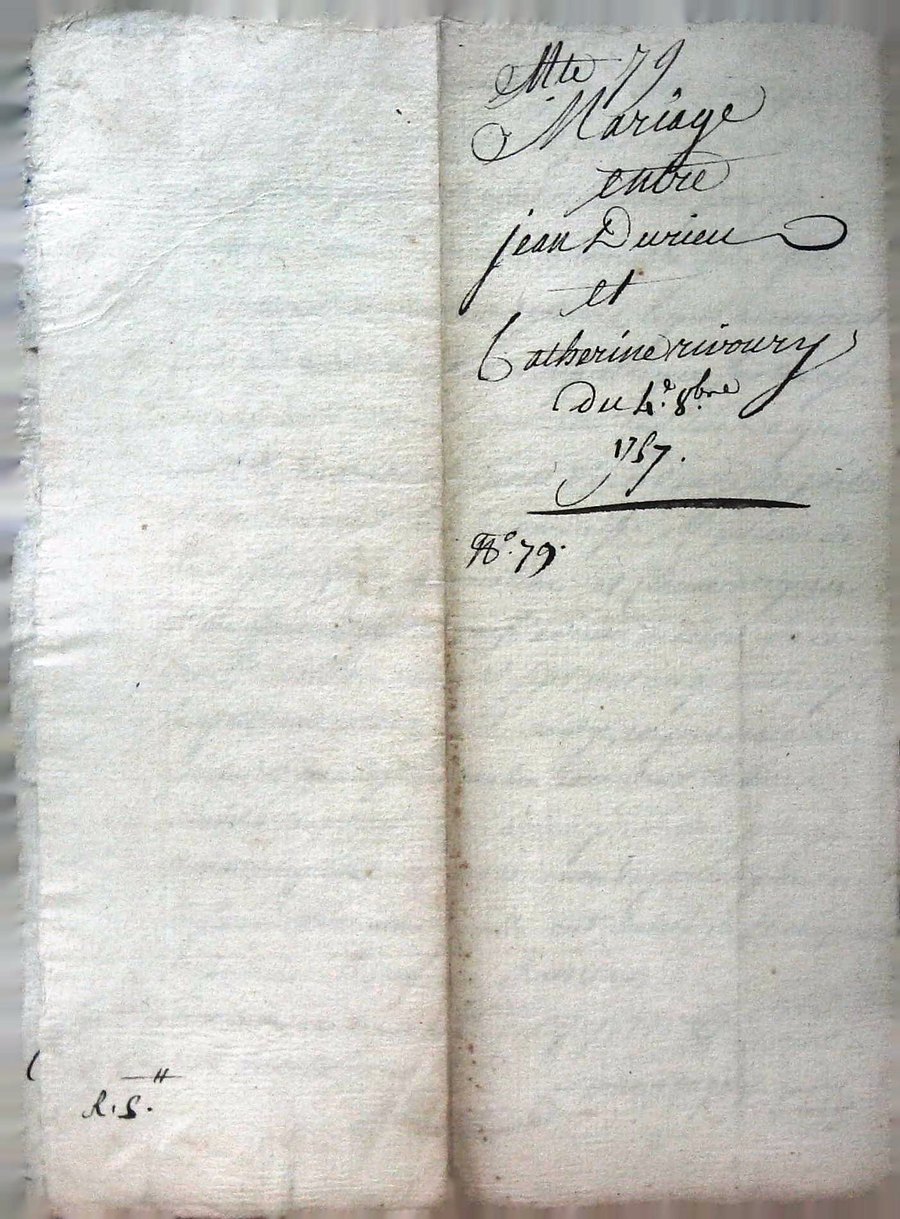 Mte 79
Mariage
entre
jean Durieu
et
Catherine rivoury
Du 4.e 8.bre
1757.
No. 79.
R. S.